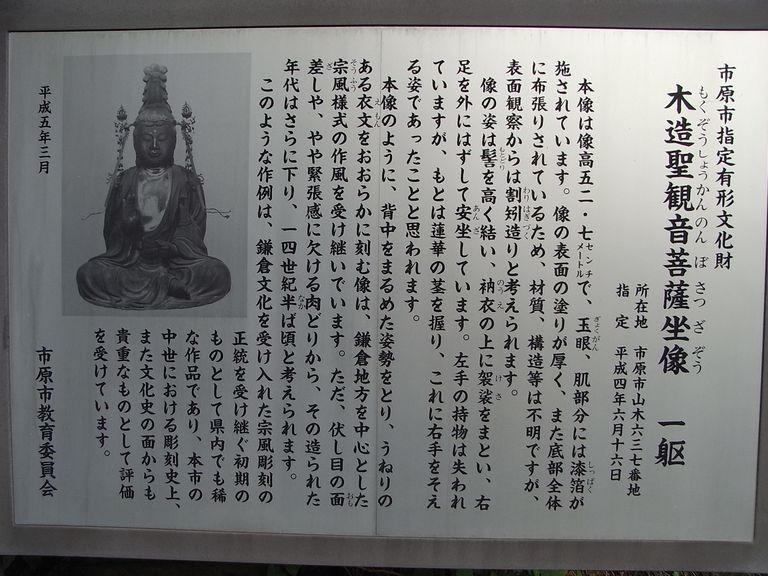 市原市指定有形文化財
木造聖観音菩薩坐像　一躯
もくぞうしょうかんのんぼさつざぞう
所在地　市原市山木六三七番地
指　定　平成四年六月十六日
本像は像高五二・七センチメートルで、玉眼　肌部分には漆箔が
施されています。像の表面の塗りが厚く、また底部全体
に布張りされているため、材質、構造等は不明ですが、
表面観察からは割矧造りと考えられます。
像の姿は髻を高く結い、衲衣の上に袈裟をまとい、右
足を外にはずして安坐しています。左手の持物は失われ
ていますが、もとは蓮華の茎を握り、これに右手をそえ
る姿であったことと思われます。
本像のように、背中をまるめた姿勢をとり、うねりの
ある衣文をおおらかに刻む像は、鎌倉地方を中心とした
宗風様式の作風を受け継いでいます。ただ、伏し目の面
差しや、やや緊張感に欠ける肉どりから、その造られた
年代はさらに下り、一四世紀半ば頃と考えられます。
このような作例は、鎌倉文化を受け入れた宗風彫刻の
正統を受け継ぐ初期の
ものとして県内でも稀
な作品であり、本市の
中世における彫刻史上、
また文化史の面からも
貴重なものとして評価
を受けています。
平成五年三月
市原市教育委員会